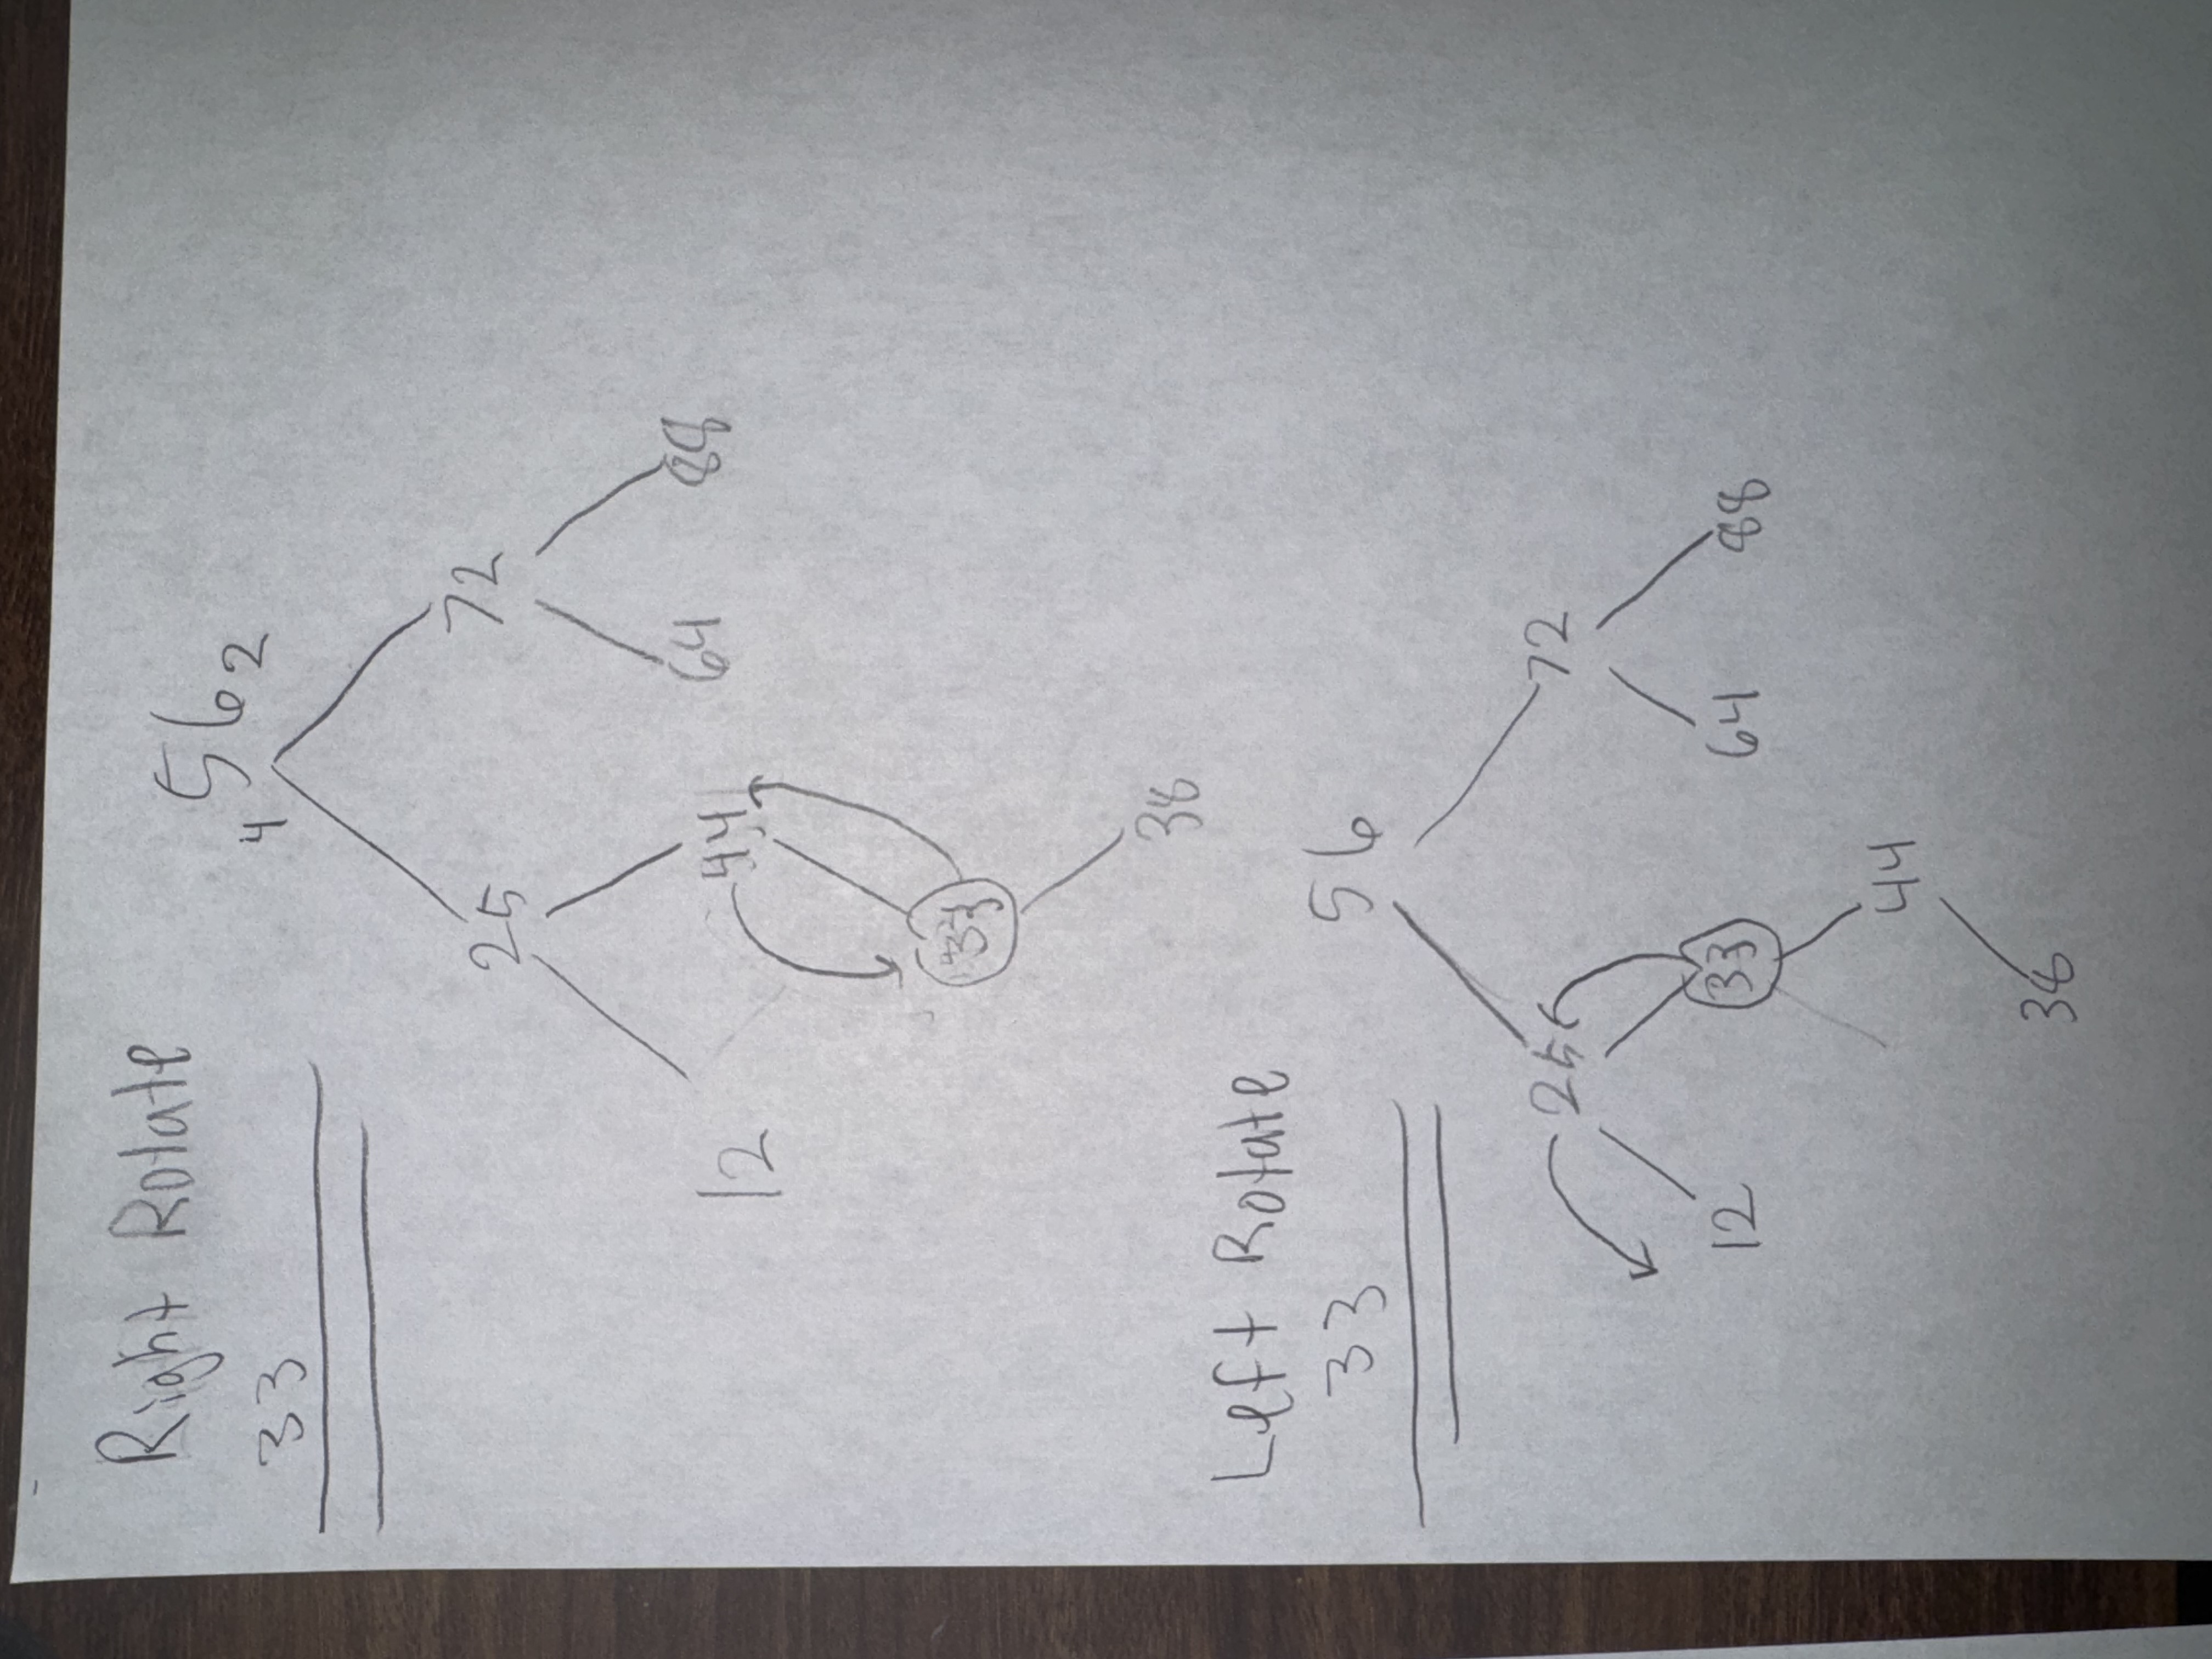 Right Rotate
33
4 56 2
25 72
12 44 64 88
33
38
Left Rotate
33
56
25 72
12 33 64 88
44
38